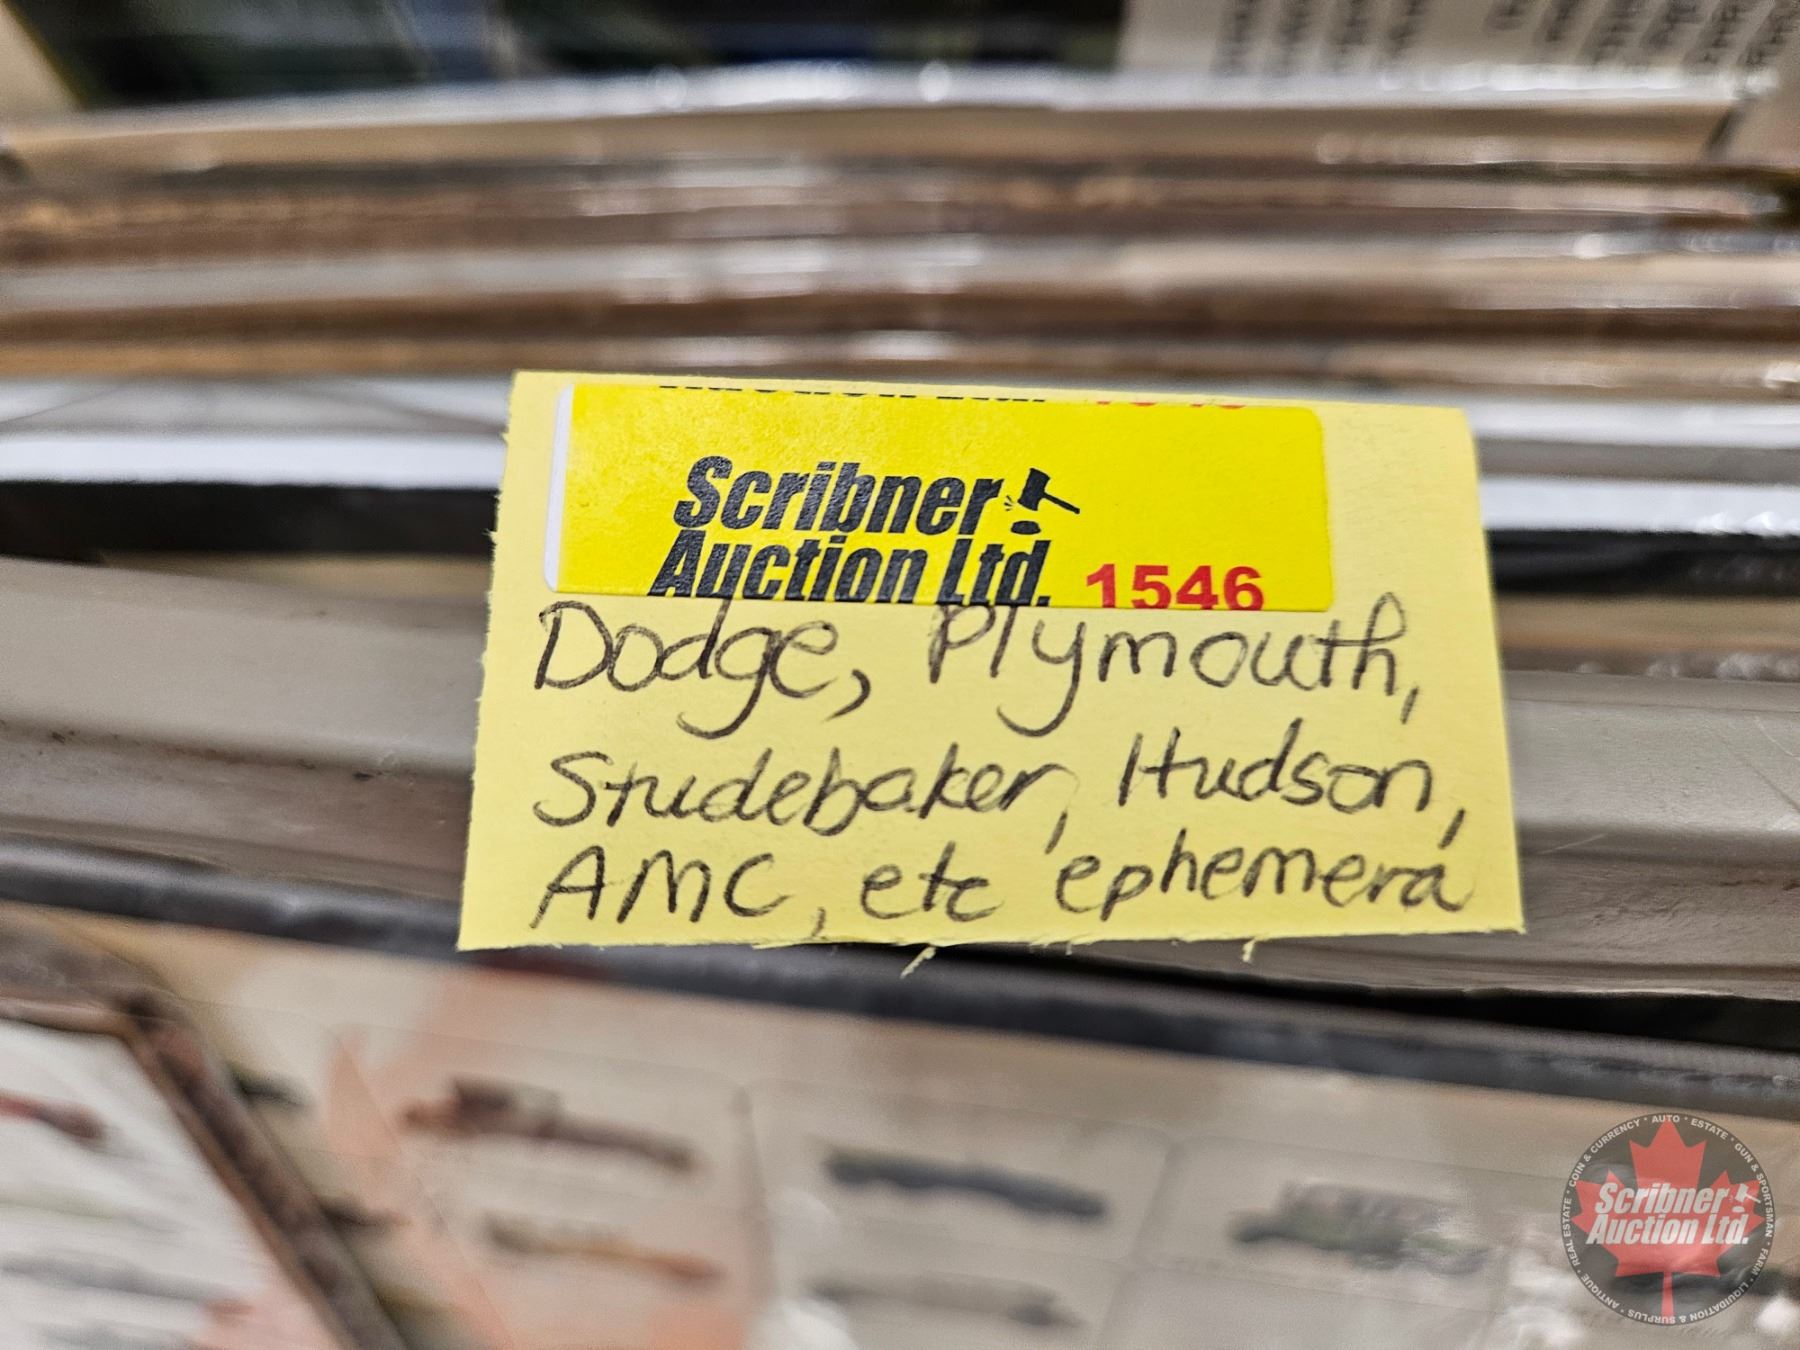 Scribner
Auction Ltd. 1546
Dodge, Plymouth,
Studebaker, Hudson,
AMC, etc ephemera
COIN & CURRENCY • AUTO • ESTATE • GUN & SPORTSMAN • FARM • LIQUIDATION & SURPLUS • ANTIQUE • REAL ESTATE •
Scribner
Auction Ltd.